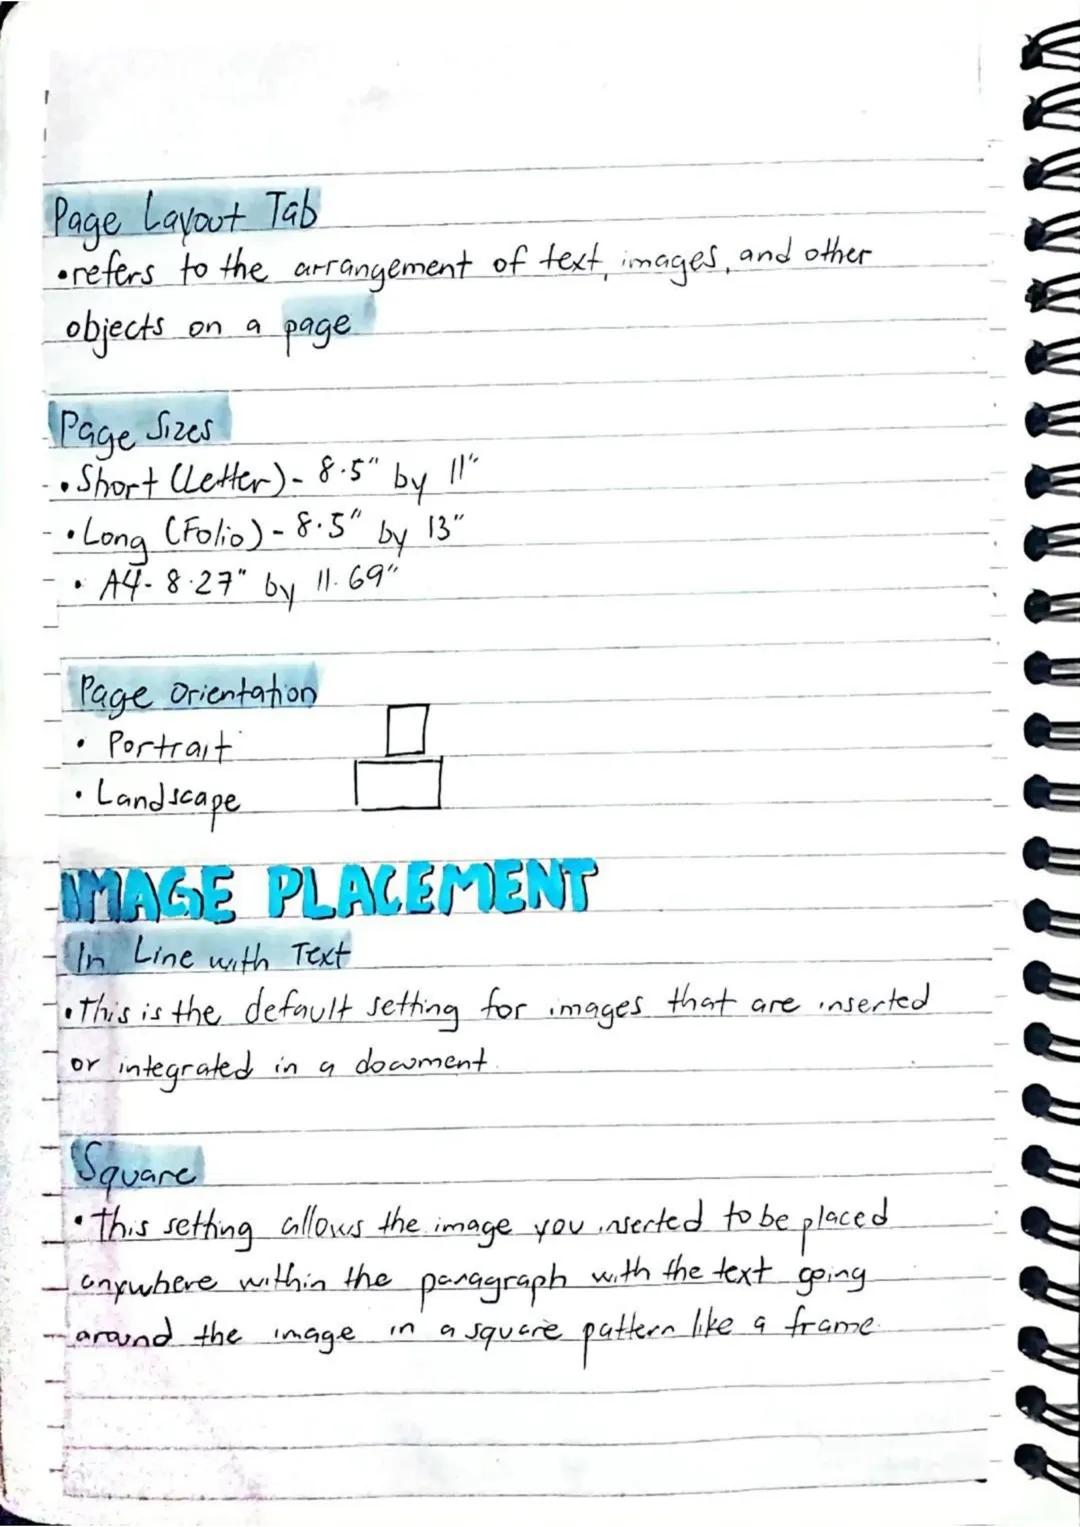 Page Layout Tab
•refers to the arrangement of text, images, and other
objects on a page
Page Sizes
• Short (Letter) - 8.5" by 11"
• Long (Folio) - 8.5" by 13"
• A4 - 8.27" by 11.69"
Page Orientation
• Portrait
• Landscape
IMAGE PLACEMENT
In Line with Text
• This is the default setting for images that are inserted
or integrated in a document.
Square
• This setting allows the image you inserted to be placed
anywhere within the paragraph with the text going
around the image in a square pattern like a frame.